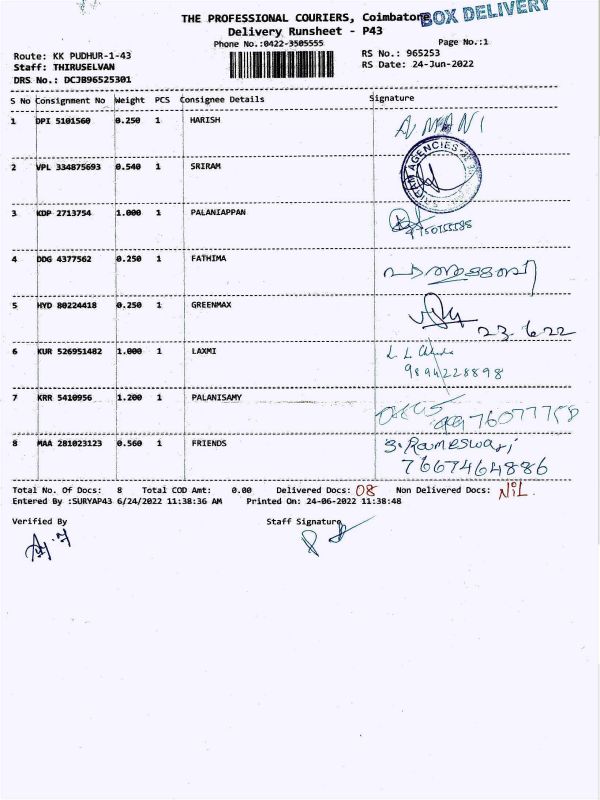 BOX DELIVERY
THE PROFESSIONAL COURIERS, Coimbatore
Delivery Runsheet - P43
Phone No.:0422-3505555 Page No.:1
Route: KK PUDHUR-1-43 RS No.: 965253
Staff: THIRUSELVAN RS Date: 24-Jun-2022
DRS No.: DCJB96525301
S No Consignment No Weight PCS Consignee Details Signature
1 DPI 5101560 0.250 1 HARISH A. MANI
2 VPL 334875693 0.540 1 SRIRAM AGENCIES
3 KDP 2713754 1.000 1 PALANIAPPAN
4 DDG 4377562 0.250 1 FATHIMA
5 HYD 80224418 0.250 1 GREENMAX 23.6.22
6 KUR 526951482 1.000 1 LAXMI
9894228898
7 KRR 5410956 1.200 1 PALANISAMY
8 MAA 281023123 0.560 1 FRIENDS S. Rameswari
7667464886
Total No. Of Docs: 8 Total COD Amt: 0.00 Delivered Docs: 08 Non Delivered Docs: NIL.
Entered By :SURYAP43 6/24/2022 11:38:36 AM Printed On: 24-06-2022 11:38:48
Verified By Staff Signature